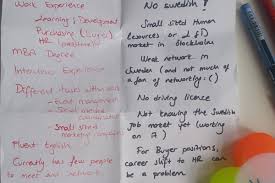 Work Experience
Learning & Development
Purchasing (Buyer)
HR
MBA Degree
International Experience
Different tasks within
- Event management
- Social media
- Small sized
Fluent English
Currently has few people
to meet and network
No Swedish !
Small sized Human
Resources or L & D
market in Stockholm
Weak network in
Sweden (and not much of
a fan of networking :( )
No driving licence
Not knowing the Swedish
job market yet (working
on it)
For Buyer positions,
career shift to HR can
be a problem.